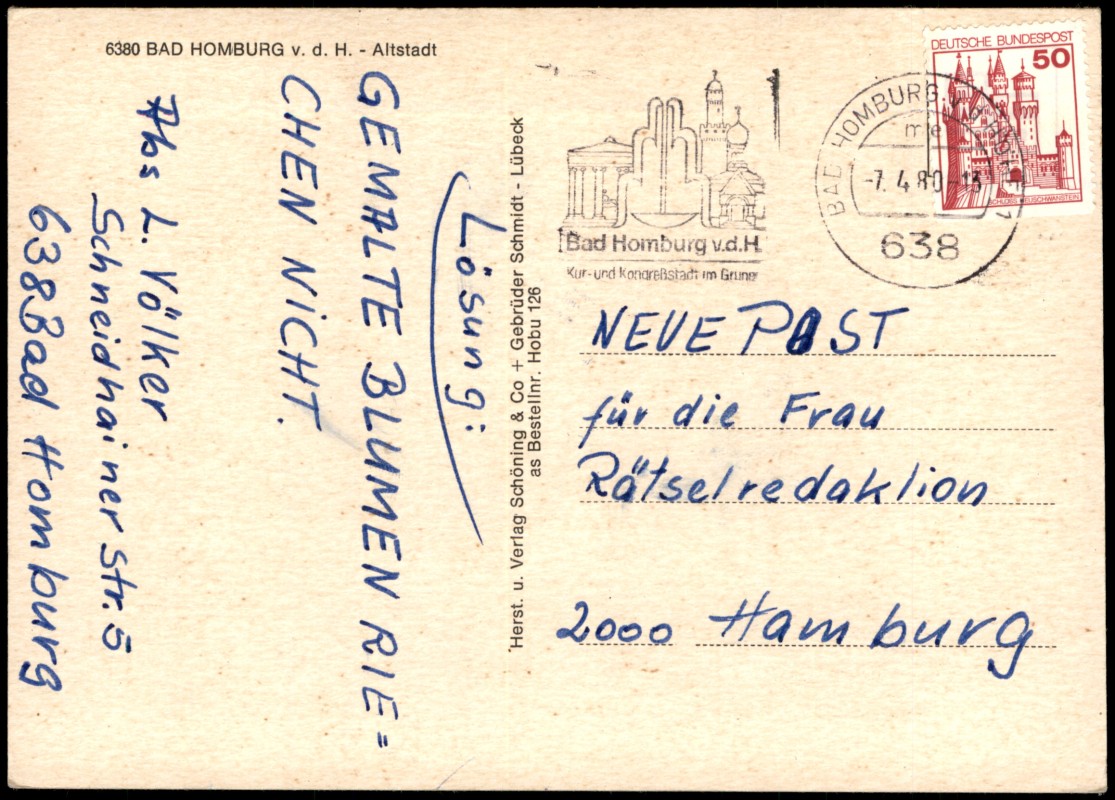 6380 BAD HOMBURG v. d. H. - Altstadt
Lösung:
GEMALTE BLUMEN RIE=
CHEN NICHT.
Abs L. Völker
Schneidhainerstr. 5
638 Bad Homburg
Herst. u. Verlag Schöning & Co + Gebrüder Schmidt - Lübeck
as Bestellnr. Hobu 126
Bad Homburg v.d.H.
Kur- und Kongreßstadt im Grünen
BAD HOMBURG v.d. HÖHE 1
me
-7. 4. 80-13
638
DEUTSCHE BUNDESPOST
50
SCHLOSS NEUSCHWANSTEIN
NEUE POST
für die Frau
Rätselredaktion
2000 Hamburg